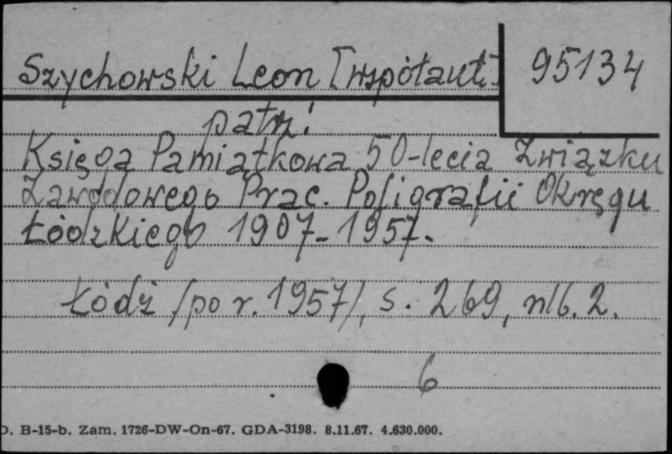 Szychowski Leon [współaut.]
95134
patrz:
Księga Pamiątkowa 50-lecia Związku
Zawodowego Prac. Poligrafii Okręgu
Łódzkiego 1907-1957.
Łódź /po r. 1957/, s. 269, nlb. 2.
6
D. B-15-b. Zam. 1726-DW-On-67. GDA-3198. 8.11.67. 4.630.000.